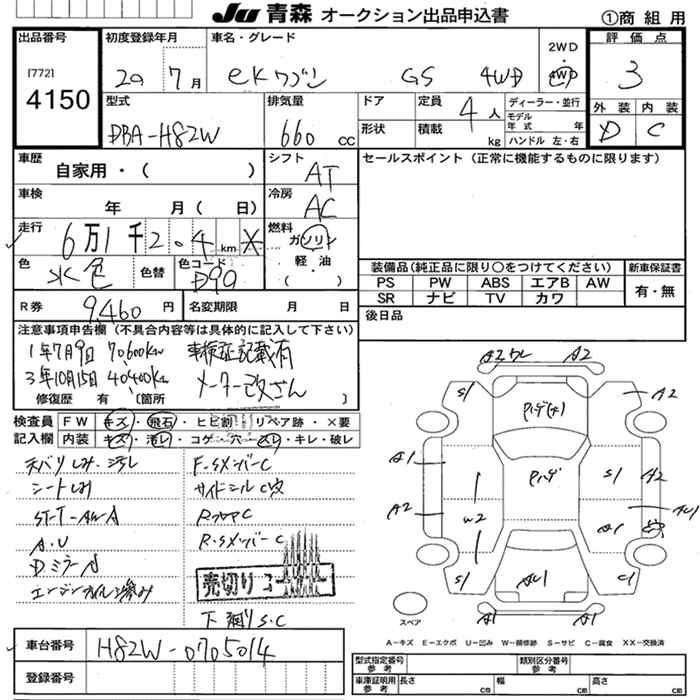 JU 青森 オークション出品申込書
①商組用
出品番号
[772]
4150
初度登録年月
20 7月
車名・グレード
eKワゴン GS 4WD
2WD
・
4WD
評価点
3
外装 内装
D C
型式
DBA-H82W
排気量
660 cc
ドア
形状
定員 4人
積載 kg
ディーラー・並行
モデル年式 年
ハンドル 左・右
車歴
自家用・( )
シフト
AT
セールスポイント(正常に機能するものに限ります)
車検
年 月( 日)
冷房
AC
走行
6万1千2.4km*
燃料
ガソリン
軽・油
( )
色
水色
色替
色コード
D99
装備品(純正品に限り○をつけてください)
新車保証書
PS PW ABS エアB AW
SR ナビ TV カワ
有・無
R券
9,460円
名変期限 月 日
後日品
注意事項申告欄(不具合内容等は具体的に記入して下さい)
1年7月9日 70600km 車検証記載有
3年10月15日 40400km メーター改ざん
修復歴 有 [箇所 ]
検査員 FW キズ・飛石・ヒビ割・リペア跡・×要
記入欄 内装 キズ・汚レ・コゲ・穴・スレ・キレ・破レ
F.Sメンバー C
シートしみ
サイドシル C
R.Sメンバー C
A.U
Dミラー A
売切り
下廻り S.C
A2 A2
S1 A2
Rハゲ
A1 S1 A2
A2 W2 A1
S1 C1
A1 A1
スペア
A-キズ E-エクボ U-凹み W-補修跡 S-サビ C-腐食 XX-交換済
車台番号 H82W-0705014
登録番号
型式指定番号 参考
類別区分番号 参考
車庫証明用 参考
長さ cm 幅 cm 高さ cm